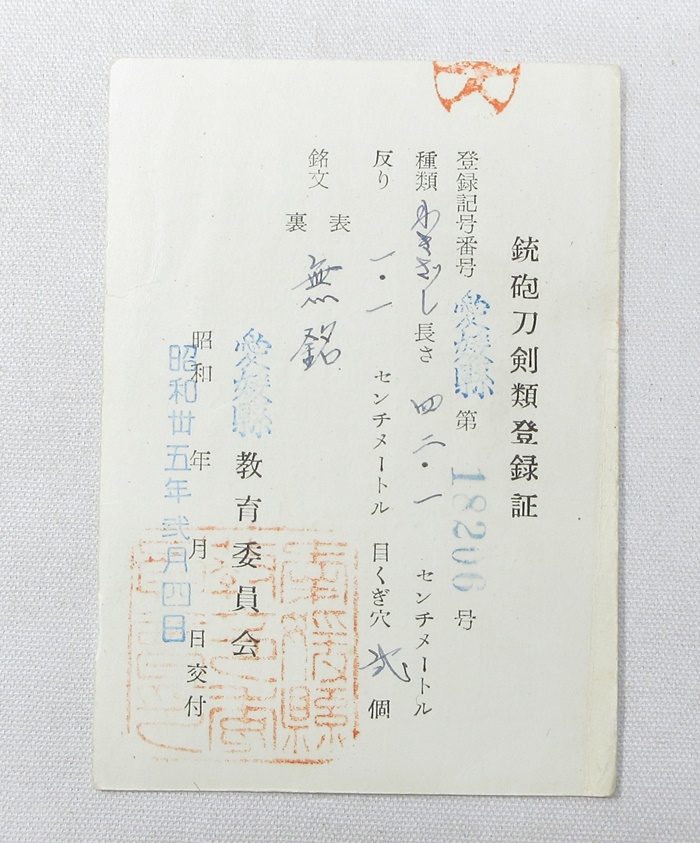 銃砲刀剣類登録証
登録記号番号 愛媛縣 第 18206 号
種類 わきざし 長さ 四二・一 センチメートル
反り 一・一 センチメートル 目くぎ穴 弐 個
銘文 表 無銘
裏
愛媛縣 教育委員会
昭和 年 月 日交付
昭和廿五年弐月四日